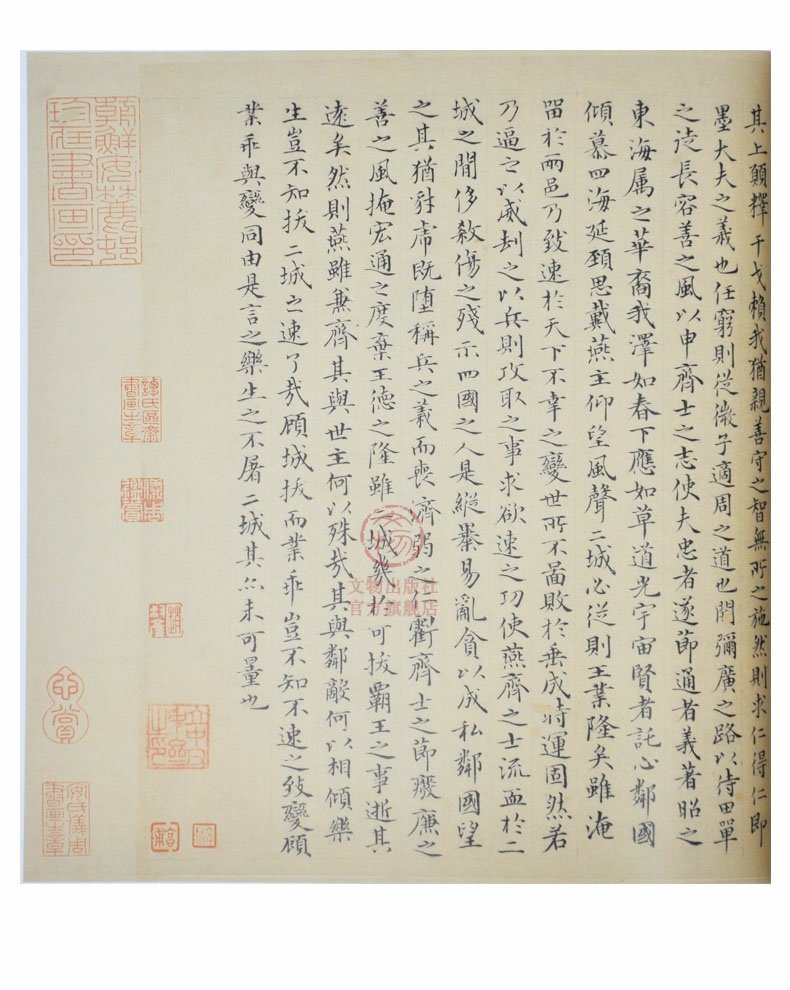 其上願釋干戈賴我猶親善守之智無所之施然則求仁得仁即
墨大夫之義也任窮則從微子適周之道也開彌廣之路以待田單
之徒長容善之風以申齊士之志使夫忠者遂節通者義著昭之
東海属之華裔我澤如春下應如草道光宇宙賢者託心鄰國
傾慕四海延頸思戴燕主仰望風聲二城必從則王業隆矣雖淹
留於兩邑乃致速於天下不幸之變世所不啚敗於垂成時運固然若
乃逼之以威劫之以兵則攻取之事求欲速之功使燕齊之士流血於二
城之間侈殺傷之殘示四國之人是縱暴易亂貪以成私鄰國望
之其猶豺虎既墮稱兵之義而喪濟弱之仁虧齊士之節廢廉之
善之風掩宏通之度棄王德之隆雖二城幾於可拔霸王之事逝其
遠矣然則燕雖兼齊其與世主何以殊哉其與鄰敵何以相傾樂
生豈不知拔二城之速了哉顧城拔而業乖豈不知不速之致變顧
業乖與變同由是言之樂生之不屠二城其亦未可量也
朝鮮安麓邨珍藏書画印
譚氏區齋書畫之章
心賞
安氏儀周書畫之章
文物出版社
官方旗舰店